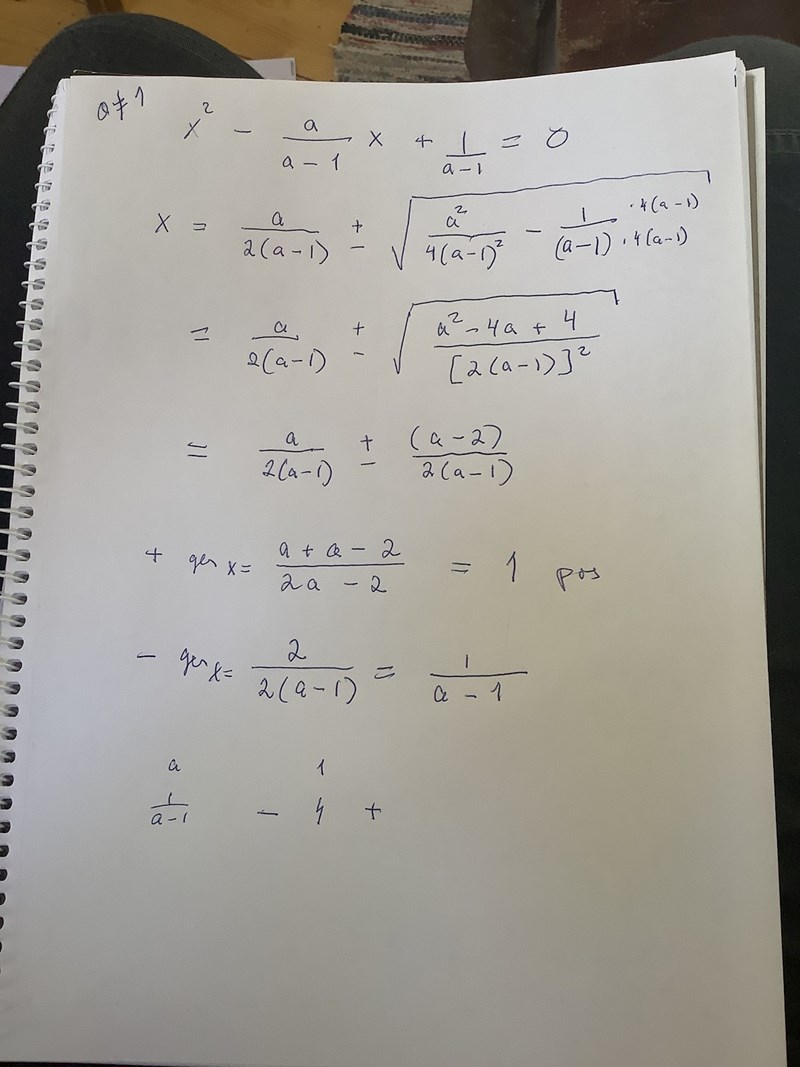 a ≠ 1
x² - a/(a-1) x + 1/(a-1) = 0
x = a/(2(a-1)) ± √( a²/(4(a-1)²) - 1/(a-1) · 4(a-1)/· 4(a-1) )
= a/(2(a-1)) ± √( (a² - 4a + 4)/[2(a-1)]² )
= a/(2(a-1)) ± (a-2)/(2(a-1))
+ ger x = (a + a - 2)/(2a - 2) = 1 pos
- ger x = 2/(2(a-1)) = 1/(a-1)
a 1
1/(a-1) - +